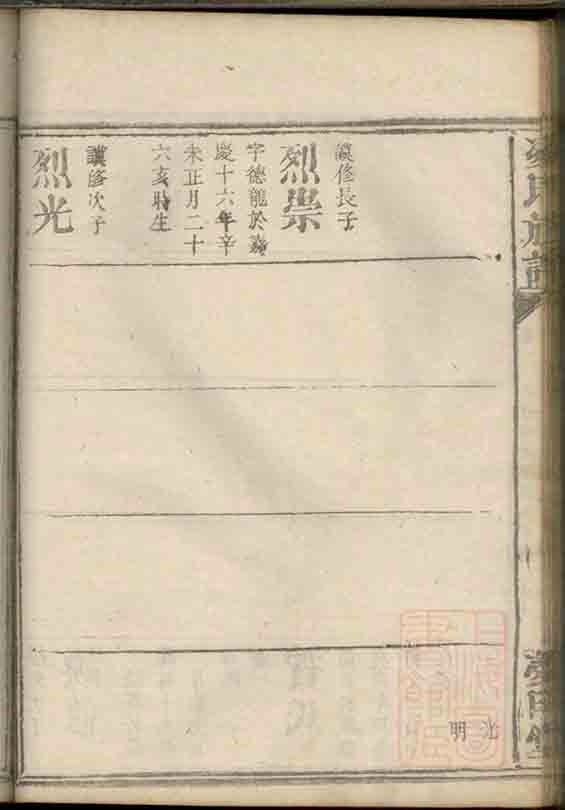 纘修長子
烈崇
字德龍於嘉
慶十六年辛
未正月二十
六亥時生
讃修次子
烈光
氏族譜
光明
上海圖書館藏